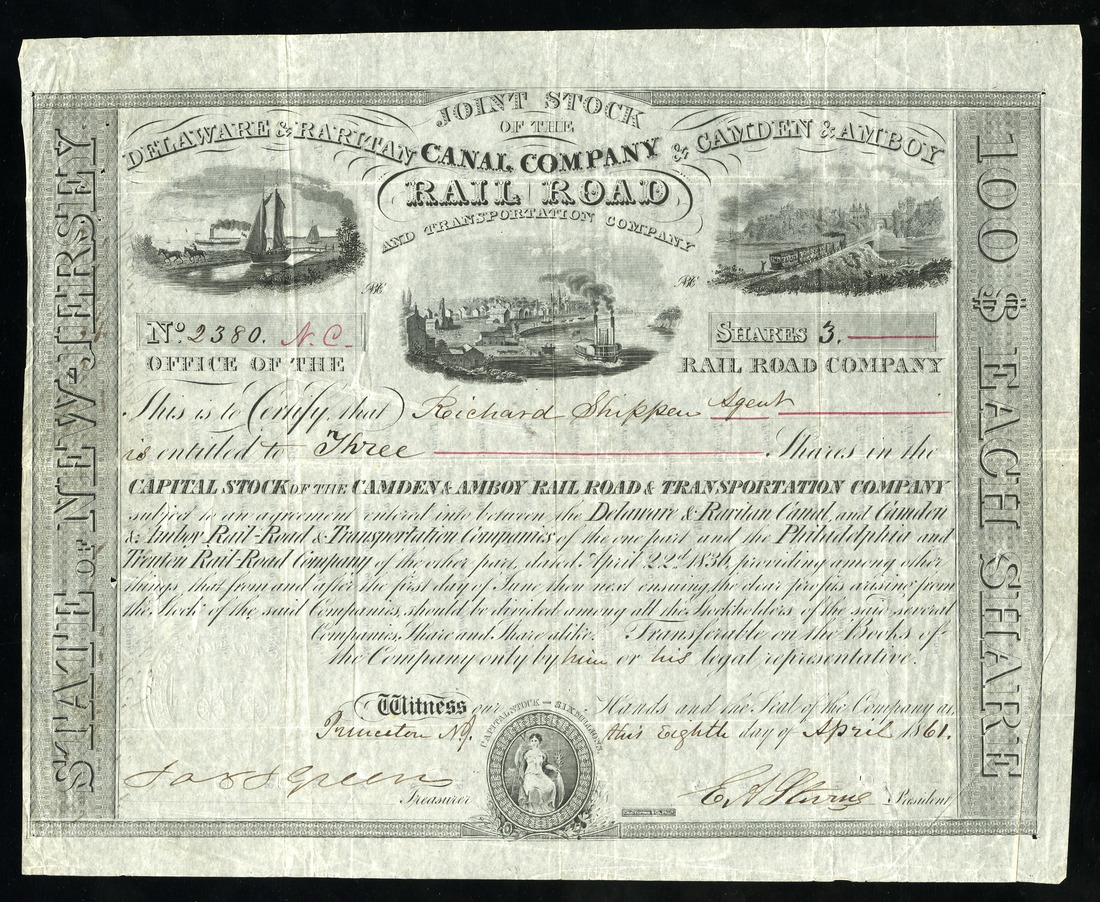 JOINT STOCK
OF THE
DELAWARE & RARITAN CANAL COMPANY & CAMDEN & AMBOY
RAIL ROAD
AND TRANSPORTATION COMPANY
STATE OF NEW-JERSEY.
100 $ EACH SHARE
No. 2380. N.C.
SHARES 3.
OFFICE OF THE RAIL ROAD COMPANY
This is to Certify, that Richard Shippen Agent
is entitled to Three Shares in the
CAPITAL STOCK OF THE CAMDEN & AMBOY RAIL ROAD & TRANSPORTATION COMPANY
subject to an agreement entered into between the Delaware & Raritan Canal, and Camden
& Amboy Rail-Road & Transportation Companies of the one part and the Philadelphia and
Trenton Rail-Road Company of the other part, dated April 22d. 1836, providing among other
things, that from and after the first day of June then next ensuing the clear profits arising from
the Stock of the said Companies, should be divided among all the Stockholders of the said several
Companies, Share and Share alike. Transferable on the Books of
the Company only by him or his legal representative.
Witness our Hands and the Seal of the Company at
Princeton NJ. this Eighth day of April 1861.
CAPITAL STOCK SIX MILLIONS.
Green Treasurer
President